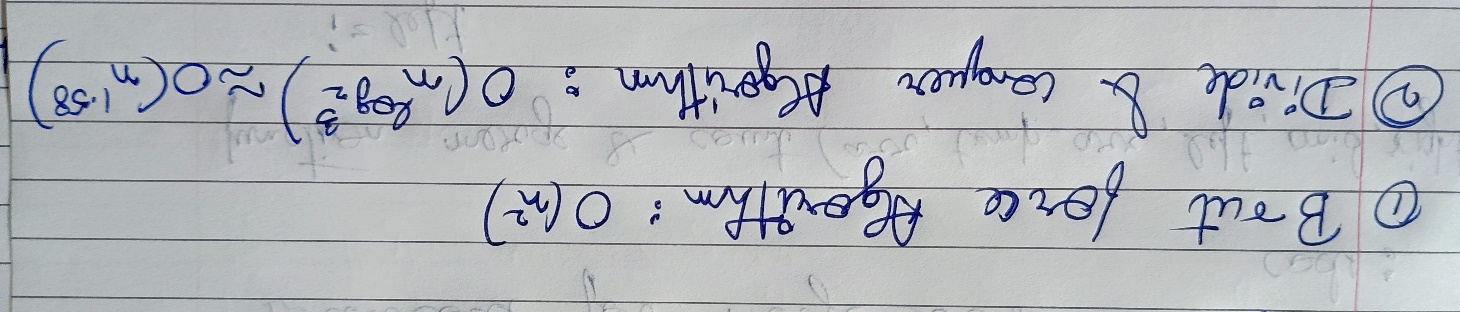 ① Brout force Algorithm : O(n²)
② Divide & Conquer Algorithm : O(n^log₂3) ≈ O(n^1.58)